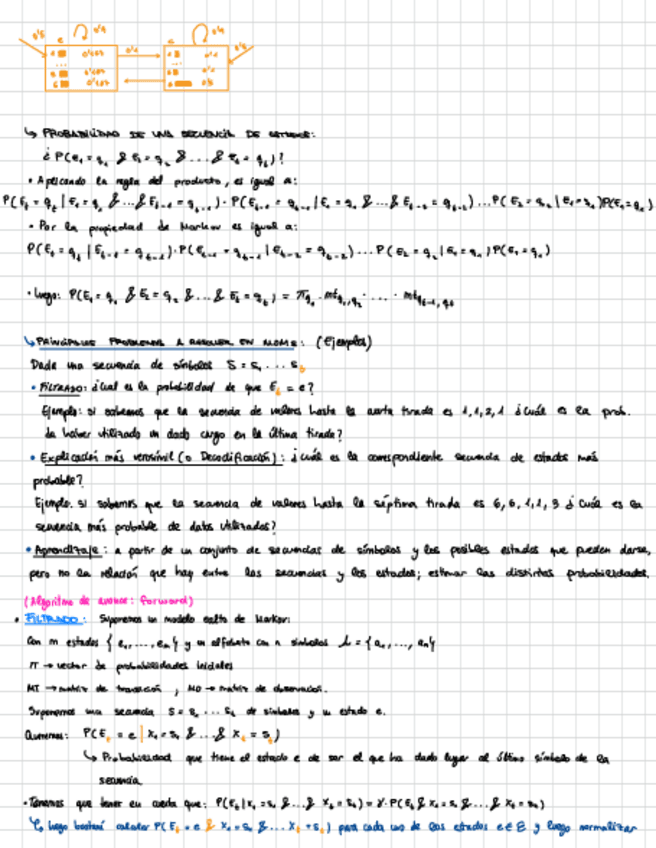 ↳ PROBABILIDAD DE UNA SECUENCIA DE ESTADOS:
¿ P(E₁ = q₁ & E₂ = q₂ & ... & Eₜ = qₜ)?
• Aplicando la regla del producto, es igual a:
P(Eₜ = qₜ | E₁ = q₁ & ... & Eₜ₋₁ = qₜ₋₁) · P(Eₜ₋₁ = qₜ₋₁ | E₁ = q₁ & ... & Eₜ₋₂ = qₜ₋₂) ... P(E₂ = q₂ | E₁ = q₁)P(E₁ = q₁)
• Por la propiedad de Markov es igual a:
P(Eₜ = qₜ | Eₜ₋₁ = qₜ₋₁) · P(Eₜ₋₁ = qₜ₋₁ | Eₜ₋₂ = qₜ₋₂) ... P(E₂ = q₂ | E₁ = q₁) P(E₁ = q₁)
• Luego: P(E₁ = q₁ & E₂ = q₂ & ... & Eₜ = qₜ) = π q₁ · mt q₁,q₂ · ... · mt qₜ₋₁,qₜ
↳ PRINCIPALES PROBLEMAS A RESOLVER EN MOMS: (Ejemplos)
Dada una secuencia de símbolos S = s₁ ... sₜ
• FILTRADO: ¿Cuál es la probabilidad de que Eₜ = e?
Ejemplo: si sabemos que la secuencia de valores hasta la cuarta tirada es 1,1,2,1 ¿cuál es la prob.
de haber utilizado un dado cargo en la última tirada?
• Explicación más verosímil (o Decodificación): ¿cuál es la correspondiente secuencia de estados más
probable?
Ejemplo. si sabemos que la secuencia de valores hasta la séptima tirada es 6, 6, 1, 1, 3 ¿ Cuál es la
secuencia más probable de datos utilizados?
• Aprendizaje: a partir de un conjunto de secuencias de símbolos y los posibles estados que pueden darse,
pero no la relación que hay entre las secuencias y los estados; estimar las distintas probabilidades.
(Algoritmo de avance: forward)
• FILTRADO: Suponemos un modelo oculto de Markov:
Con m estados { e₁, ..., eₘ } y un alfabeto con n símbolos = { a₁, ..., aₙ }
π → vector de probabilidades iniciales
MT → matriz de transición , MO → matriz de observación.
Suponemos una secuencia S = s₁ ... sₜ de símbolos y un estado e.
Queremos: P(Eₜ = e | X₁ = s₁ & ... & Xₜ = sₜ)
↳ Probabilidad que tiene el estado e de ser el que ha dado lugar al último símbolo de la
secuencia
• Tenemos que tener en cuenta que: P(Eₜ | X₁ = s₁ & ... & Xₜ = sₜ) = γ · P(Eₜ & X₁ = s₁ & ... & Xₜ = sₜ)
↳ luego bastará calcular P(Eₜ = e & X₁ = s₁ & ... Xₜ = sₜ) para cada uno de los estados e ∈ E y luego normalizar